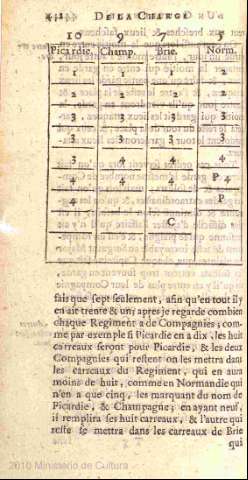 DE LA CHARGE
10 9 7 5
Picardie. Champ. Brie. Norm.
1 1 1 1
2 2 2 2
3 3 3 3
3 3 3 3
3 4 4 4
4 4 4 P 4
4 4 P
C
fais que sept seulement, afin qu'en tout il y
en ait trente & un; apres je regarde combien
chaque Regiment a de Compagnies; com-
me par exemple si Picardie en a dix, les huit
carreaux seront pour Picardie, & les deux
Compagnies qui restent on les mettra dans
les carreaux du Regiment, qui en aura
moins de huit, comme en Normandie qui
n'en a que cinq, les marquant du nom de
Picardie, & Champagne; en ayant neuf,
il remplira ses huit carreaux, & l'autre qui
reste se mettra dans les carreaux de Brie
qui
2010 Ministerio de Cultura